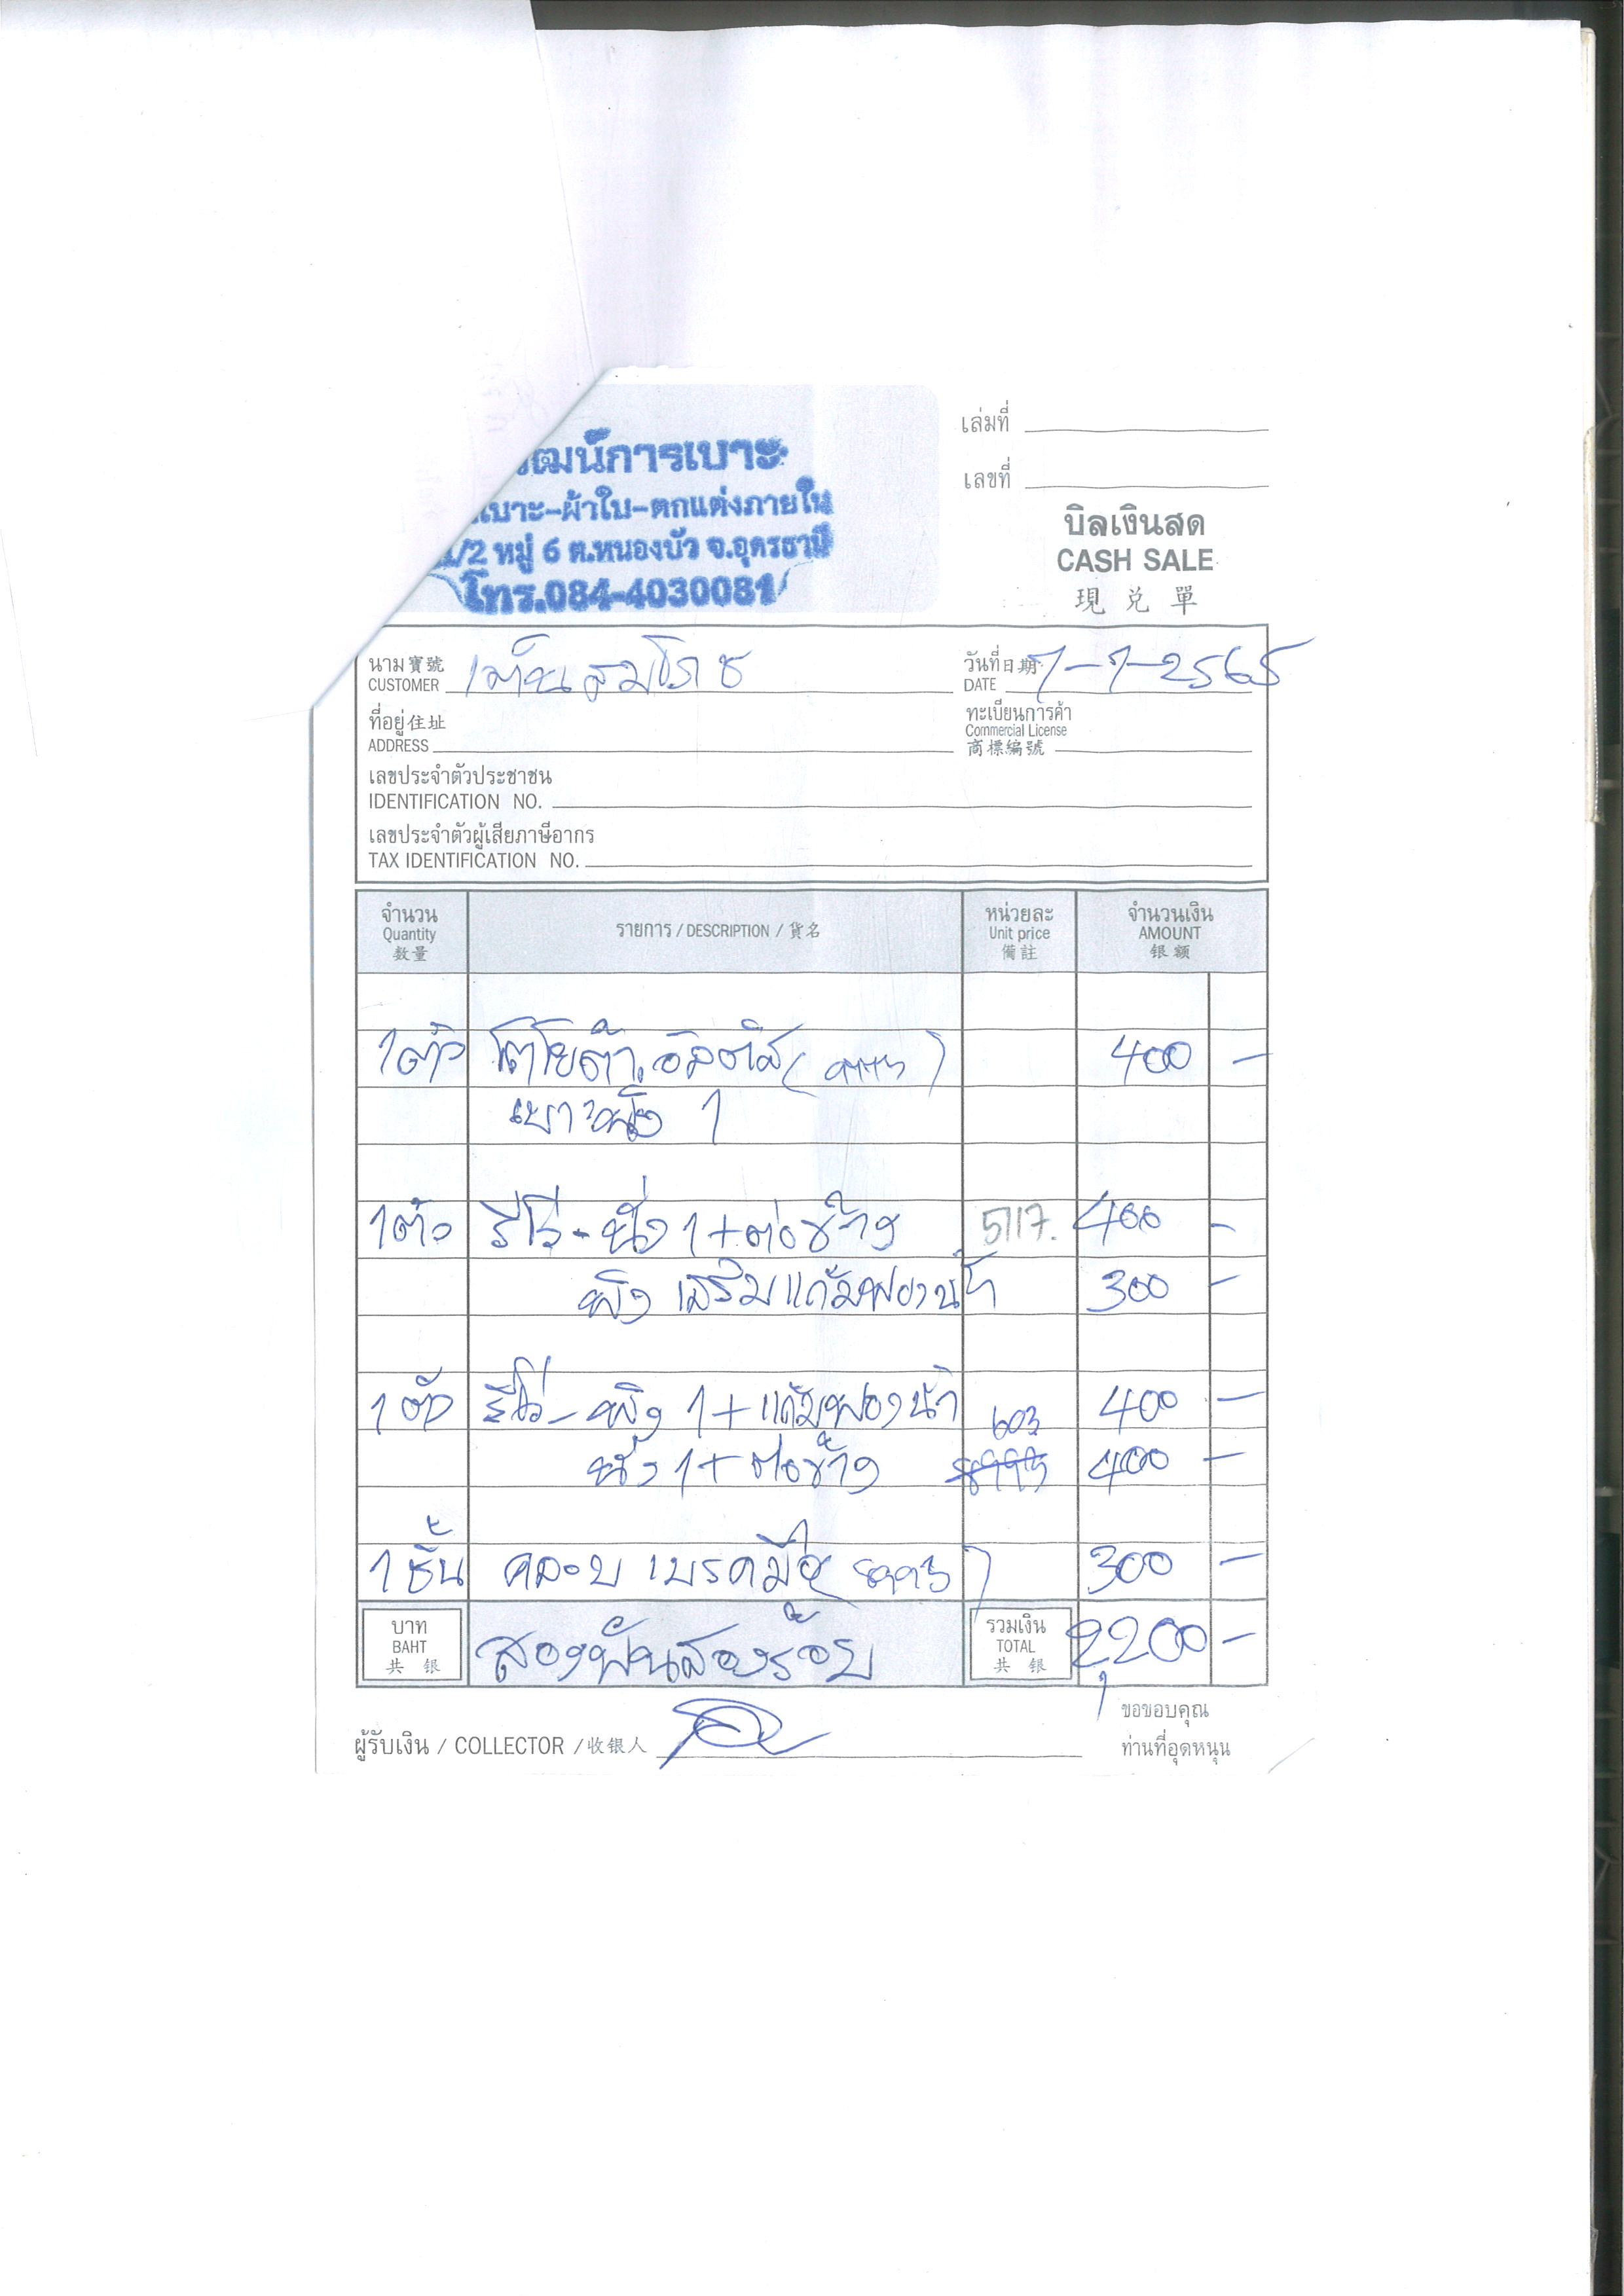 วัฒน์การเบาะ
เบาะ-ผ้าใบ-ตกแต่งภายใน
1/2 หมู่ 6 ต.หนองบัว จ.อุดรธานี
โทร.084-4030081
เล่มที่
เลขที่
บิลเงินสด
CASH SALE
現兑單
นาม寶號 เต็นสมโภช
CUSTOMER
วันที่日期 7-7-2565
DATE
ที่อยู่住址
ADDRESS
ทะเบียนการค้า
Commercial License
商標編號
เลขประจำตัวประชาชน
IDENTIFICATION NO.
เลขประจำตัวผู้เสียภาษีอากร
TAX IDENTIFICATION NO.
จำนวน
Quantity
数量
รายการ / DESCRIPTION / 貨名
หน่วยละ
Unit price
備註
จำนวนเงิน
AMOUNT
银额
1ตัว โตโยต้า อัลติส 400 -
เบาะนั่ง 1
1ตัว รีโว่-นั่ง 1+ต่อข้าง 5117. 400 -
พิง เสริมแก้มฟองน้ำ 300 -
1ตัว รีโว่-พิง 1+แก้มฟองน้ำ 603 400 -
นั่ง 1+ต่อข้าง 400 -
1ชิ้น ครอบเบรคมือ 300 -
บาท
BAHT
共银
สองพันสองร้อย
รวมเงิน
TOTAL
共银
2,200 -
ผู้รับเงิน / COLLECTOR / 收银人
ขอขอบคุณ
ท่านที่อุดหนุน